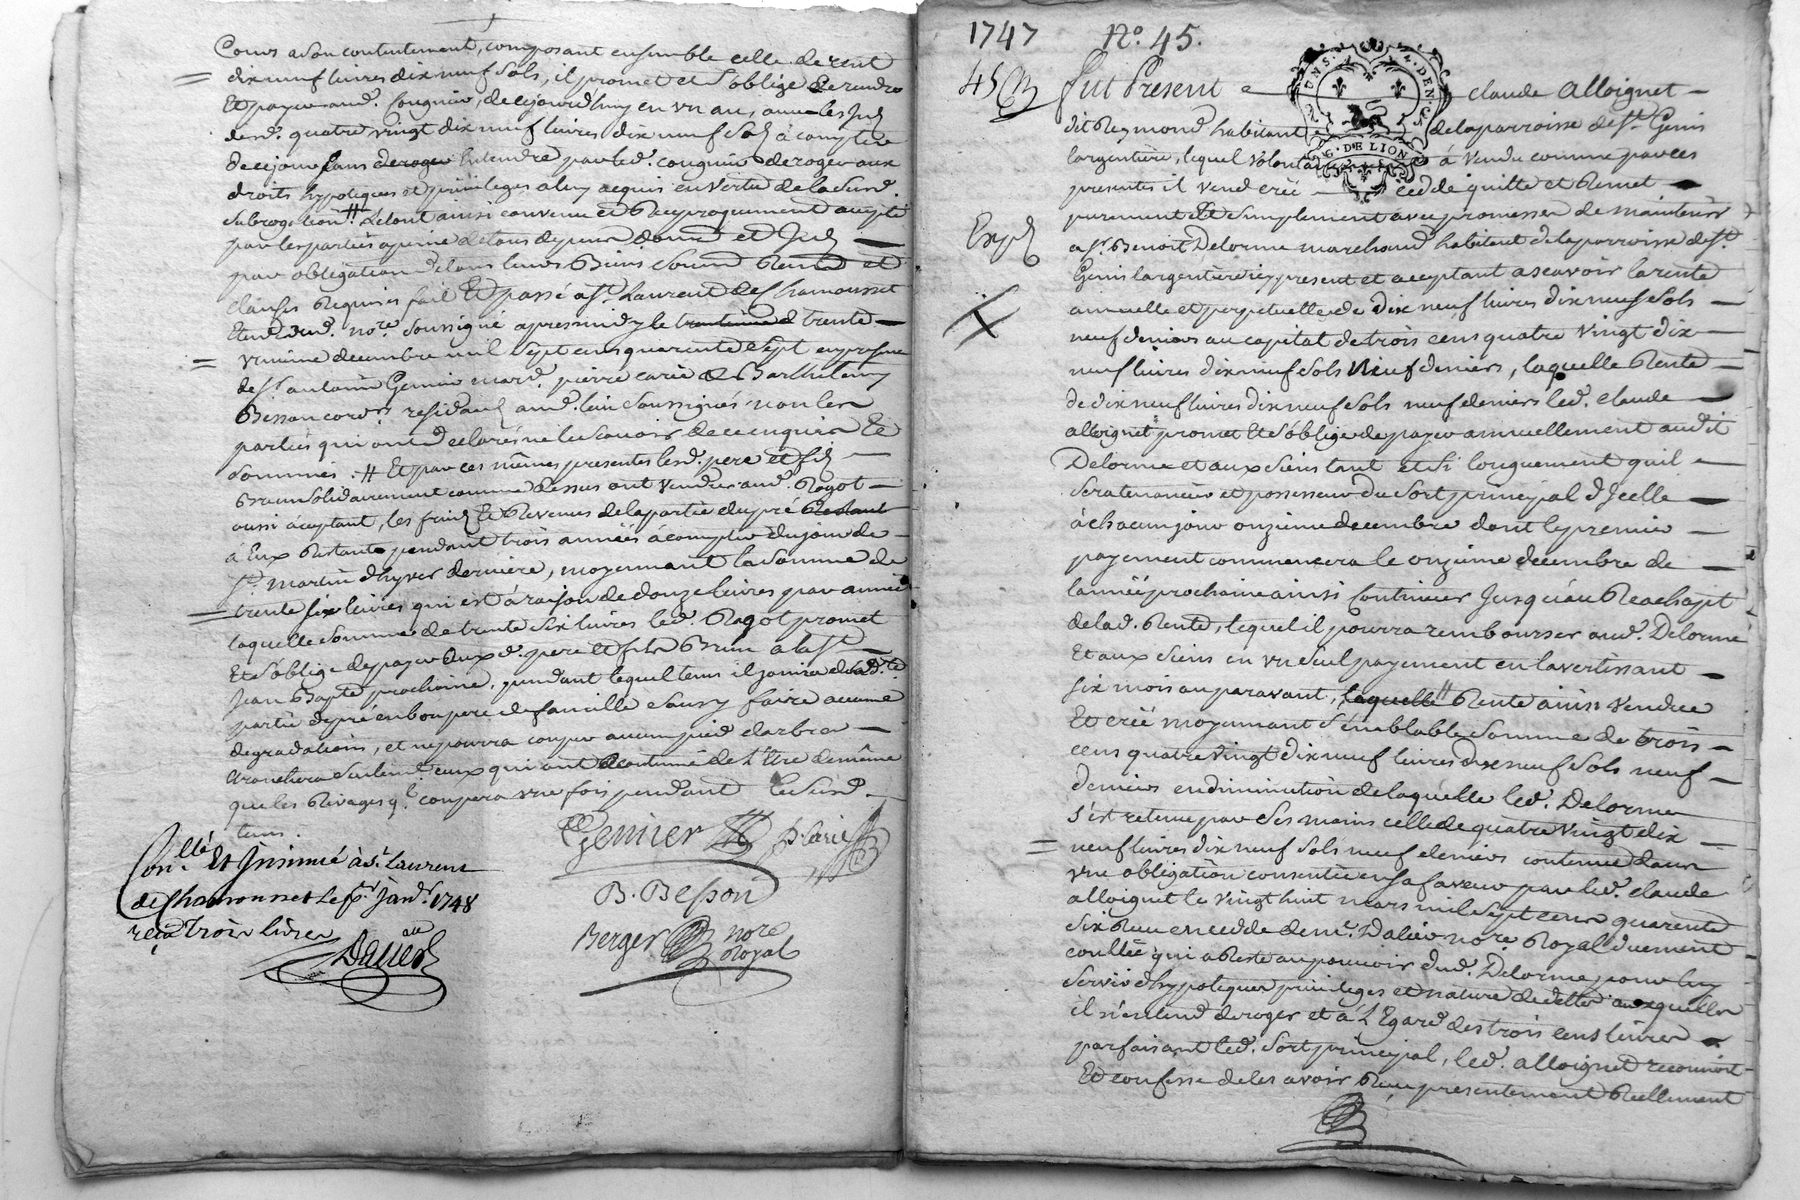 Cours a son contentement, composant ensemble celle de cent
dix neuf livres dix neuf sols, il promet et s'oblige de rendre
Et payer aud. Cougnin, de cejourd'huy en un an,
de quatre vingt dix neuf livres dix neuf sols à compter
de ce jour sans entendre par led. cougnin deroger aux
droits hypoteques et privileges a luy acquis en vertu de la susd.
subrogation # dont ainsi convenu et Reciproquement accepté
par les parties a peine de tous depens et
par obligation de tous leurs Biens Renon. et
clauses Requises fait Et passé a St. Laurent de Chamousset
Etude dud. nore. soussigné apres midy le trentieme trente
unieme decembre mil sept cens quarente sept en presence
de Sr. antoine Gemier mard. pierre carié & Barthelemy
Besson residants aud. lieu soussignés non les
parties qui ont declaré ne le scavoir de ce enquis Et
sommés .# Et par ces mêmes presentes lesd. pere et fils
Brun solidairement comme dessus ont vendu aud. Ragot
aussi aceptant, les fruits Et Revenus de la partie du pré Restant
à Eux Restante pendant trois années à compter du jour de
St. martin d'hyver derniere, moyennant la somme de
trente six livres qui est à raison de douze livres par année
laquelle somme de trente six livres led. Ragot promet
Et s'oblige de payer auxd. pere et fils Brun a la St.
Jean Bapte prochaine, pendant lequel tems il jouira de lad. te
partie de pré en bon pere de famille sans y faire aucune
degradations, et ne pourra couper aucun pied d'arbre
seulemt. ceux qui ont accoutumé de L'Etre de même
que les Rivages ql. coupera une fois pendant le susd.
tems.
Gemier P. Carié
B. Besson
Berger nore
Royal
Conllé. Et Insinué à St. Laurent
de Chamousset le pr. janr. 1748
reçu trois livres
1747 No. 45.
45
G. DE LION
fut Present Claude alloignet
dit Reymond habitant de la parroisse de St. Genis
largentiere, lequel volontairement à vendu comme par ces
presentes il vend creé cede quitte et Remet
purement Et simplement avec promesse de maintenir
Exp.
a Sr. Benoit Delorme marchand habitant de la parroisse de St.
Genis largentiere icy present et aceptant a scavoir la rente
annuelle et perpetuelle de dix neuf livres dix neuf sols
neuf deniers au capital de trois cens quatre vingt dix
neuf livres dix neuf sols Neuf deniers, laquelle Rente
de dix neuf livres dix neuf sols neuf deniers led. Claude
alloignet promet Et s'oblige de payer annuellement audit
Delorme et aux siens tant et si longuement quil
sera tenancier et possesseur du sort principal d'Icelle
à chacun jour onzieme decembre dont le premier
payement commencera le onzieme decembre de
l'année prochaine ainsi continuer Jusqu'au Reachapt
de lad. Rente, lequel il pourra rembourser aud. Delorme
Et aux siens en un seul payement en l'avertissant
six mois auparavant, laquelle # Rente ainsi vendue
Et creé moyennant semblable somme de trois
cens quatre vingt dix neuf livres dix neuf sols neuf
deniers en diminution de laquelle led. Delorme
s'est retenu par ses mains celle de quatre vingt dix
neuf livres dix neuf sols neuf deniers contenue dans
une obligation consentie en sa faveur par led. Claude
alloignet le vingt huit mars mil sept cens quarente
six Reçue en cedde de me. Dalier nore. Royal duement
conllée qui a Resté au pouvoir dud. Delorme pour luy
servir d'hypoteques privileges et nature de dette auxquelles
il n'entend deroger et à L'Egard des trois cens livres
parfaisant led. sort principal, led. alloignet reconnoit
Et confesse de les avoir Reçu presentement Reellement